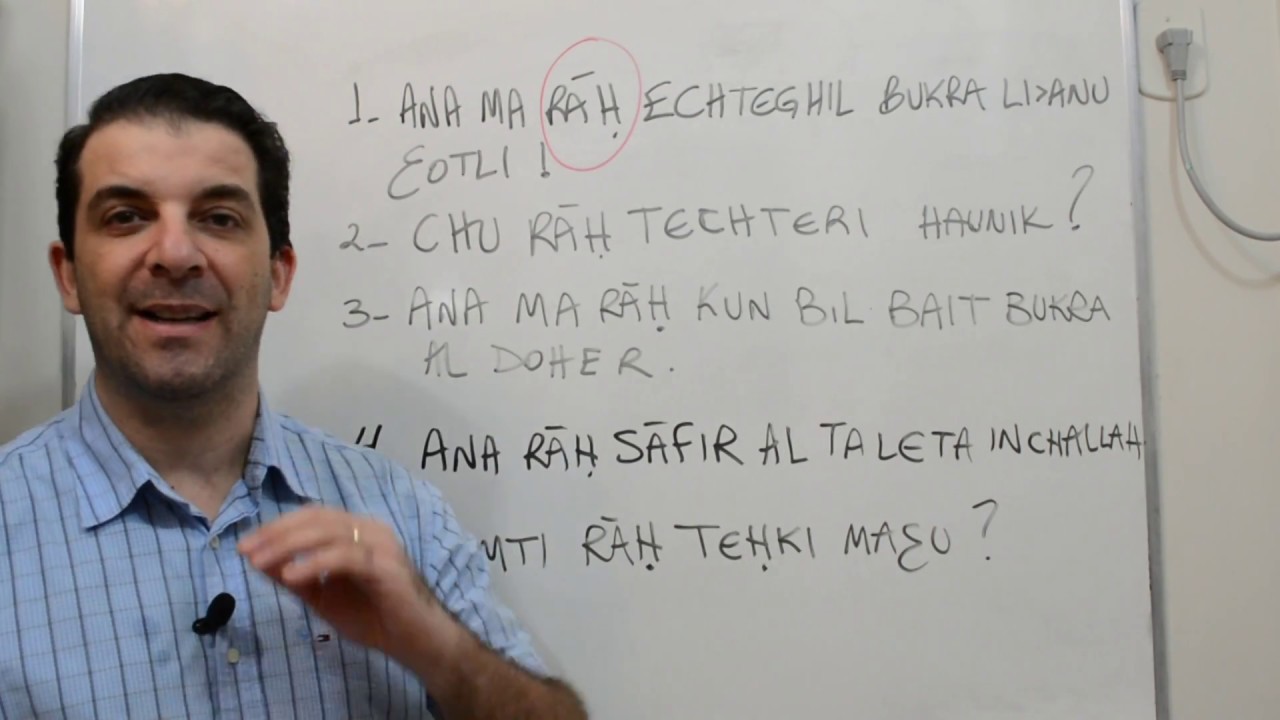 1- ANA MA RĀḤ ECHTEGHIL BUKRA LI>ANU
ƐOTLI !
2- CHU RĀḤ TECHTERI HAUNIK ?
3- ANA MA RĀḤ KUN BIL BAIT BUKRA
AL DOHER.
ANA RĀḤ SĀFIR AL TALETA INCHALLAH
RĀḤ TEḤKI MAƐU ?